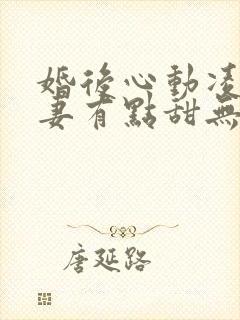 婚後心動凌
妻有點甜無
唐延路